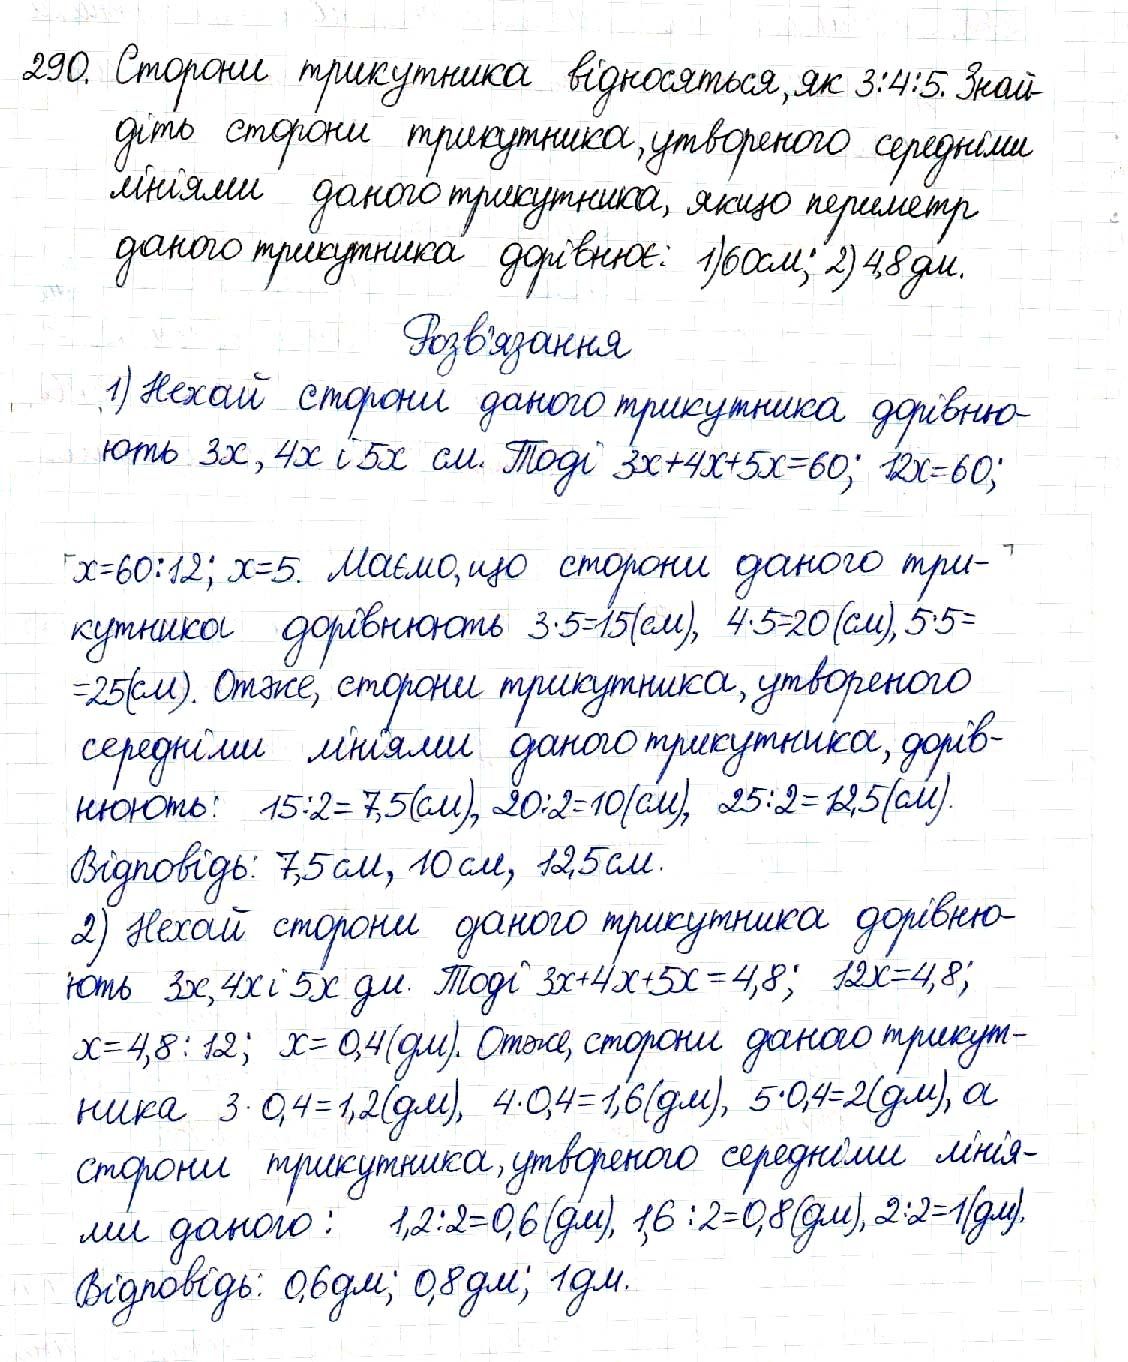 290. Сторони трикутника відносяться, як 3:4:5. Знай-
діть сторони трикутника, утвореного середніми
лініями даного трикутника, якщо периметр
даного трикутника дорівнює: 1) 60 см; 2) 4,8 дм.
Розв'язання
1) Нехай сторони даного трикутника дорівню-
ють 3x, 4x і 5x см. Тоді 3x+4x+5x=60; 12x=60;
x=60:12; x=5. Маємо, що сторони даного три-
кутника дорівнюють 3·5=15(см), 4·5=20(см), 5·5=
=25(см). Отже, сторони трикутника, утвореного
середніми лініями даного трикутника, дорів-
нюють: 15:2=7,5(см), 20:2=10(см), 25:2=12,5(см).
Відповідь: 7,5 см, 10 см, 12,5 см.
2) Нехай сторони даного трикутника дорівню-
ють 3x, 4x і 5x дм. Тоді 3x+4x+5x=4,8; 12x=4,8;
x=4,8:12; x=0,4(дм). Отже, сторони даного трикут-
ника 3·0,4=1,2(дм), 4·0,4=1,6(дм), 5·0,4=2(дм), а
сторони трикутника, утвореного середніми лінія-
ми даного: 1,2:2=0,6(дм), 1,6:2=0,8(дм), 2:2=1(дм).
Відповідь: 0,6 дм; 0,8 дм; 1 дм.